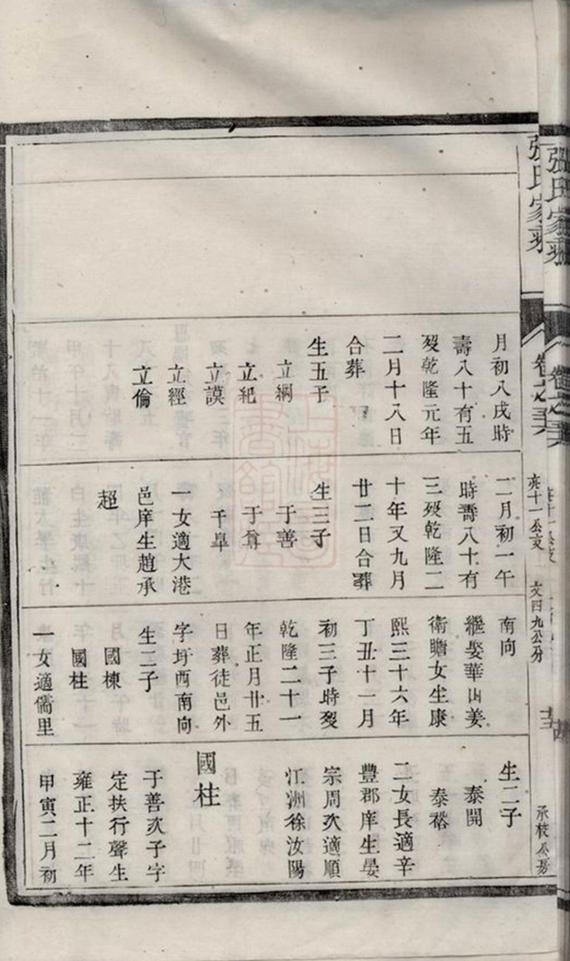 張氏家乘
月初八戌時
壽八十有五
歿乾隆元年
二月十八日
合葬
生五子
立綱
立紀
立謨
立經
立倫
二月初一午
時壽八十有
三歿乾隆二
十年又九月
廿二日合葬
生三子
于善
于尊
于皋
一女適大港
邑庠生趙承
超
南向
繼娶華山姜
衛瞻女生康
熙三十六年
丁丑十一月
初三子時歿
乾隆二十一
年正月廿五
日葬徒邑外
字圩西南向
生二子
國棟
國柱
一女適儒里
生二子
泰開
泰裕
二女長適辛
豐郡庠生晏
宗周次適順
江洲徐汝陽
國柱
于善次子字
定扶行聲生
雍正十二年
甲寅二月初